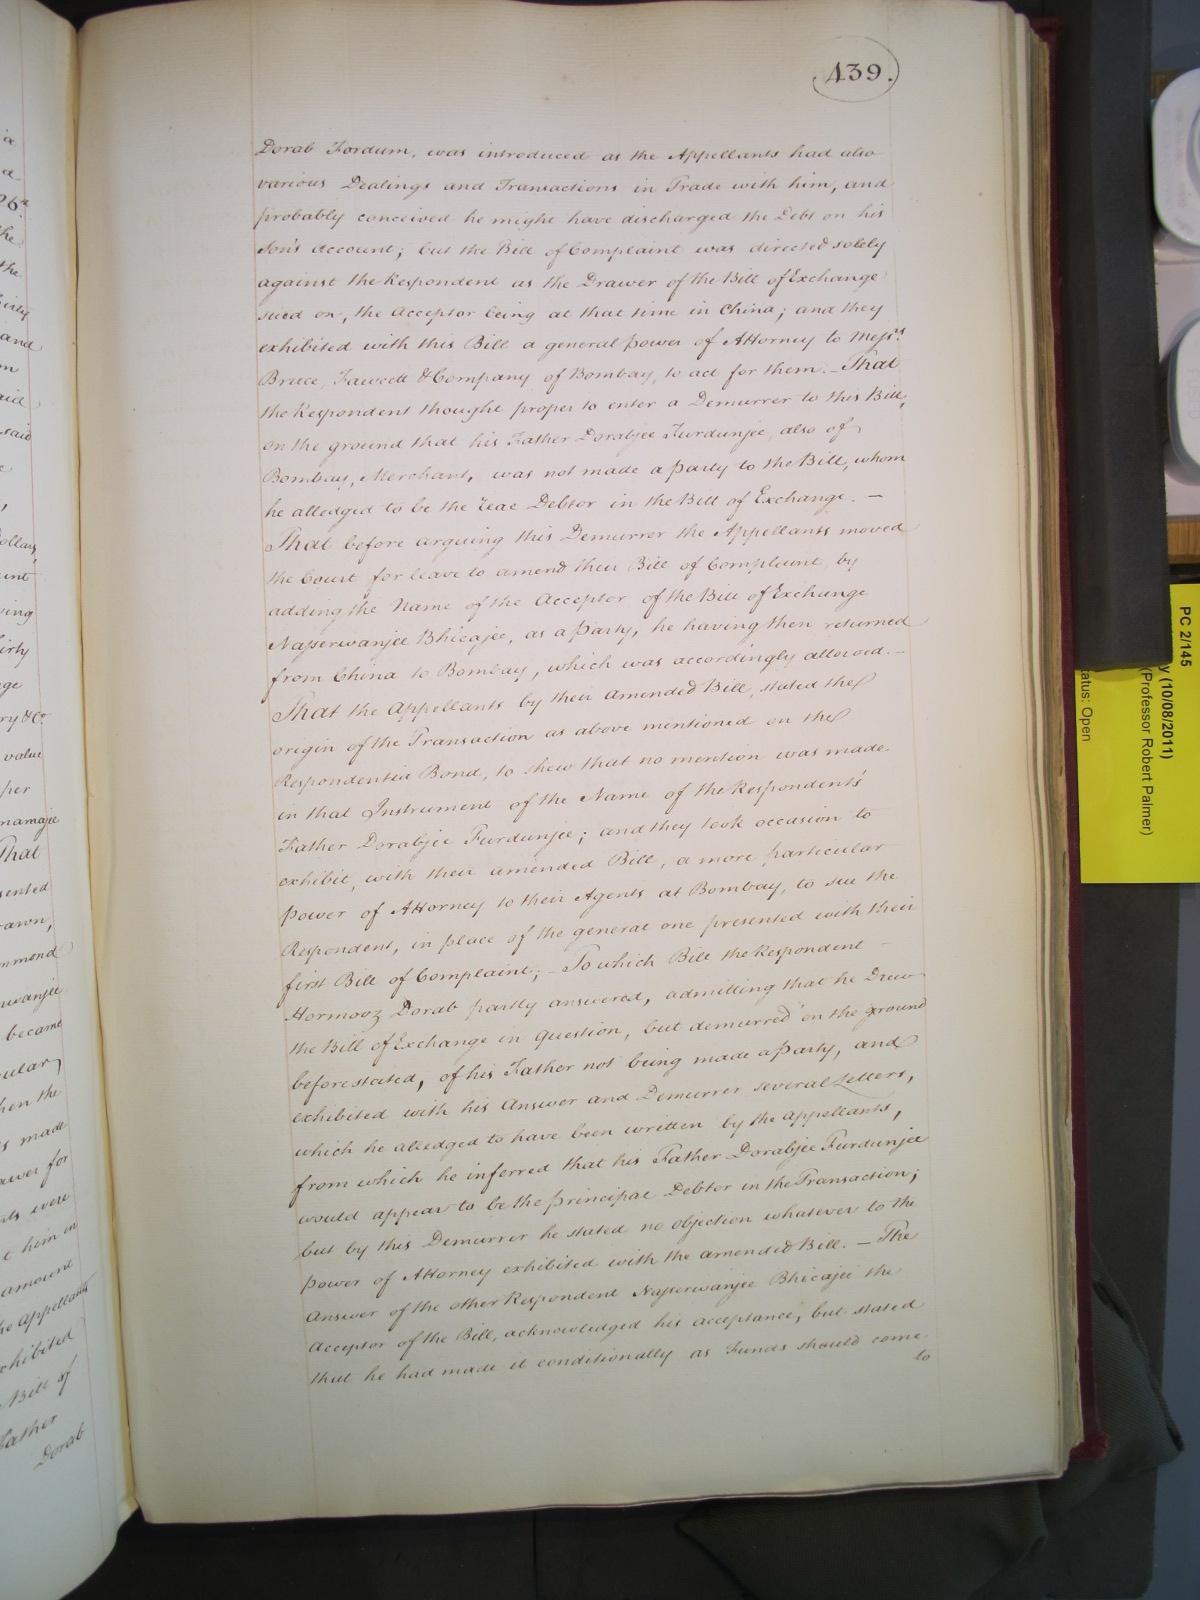 439.
Dorab Fordum, was introduced as the Appellants had also
various Dealings and Transactions in Trade with him, and
probably conceived he might have discharged the Debt on his
Son's Account; but the Bill of Complaint was directed solely
against the Respondent as the Drawer of the Bill of Exchange
sued on, the Acceptor being at that time in China; and they
exhibited with this Bill a general power of Attorney to Messrs.
Bruce, Fawcett & Company of Bombay, to act for them. - That
the Respondent thought proper to enter a Demurrer to this Bill,
on the ground that his Father Dorabjee Furdunjee, also of
Bombay, Merchant, was not made a party to the Bill, whom
he alledged to be the real Debtor in the Bill of Exchange. —
That before arguing this Demurrer the Appellants moved
the Court for leave to amend their Bill of Complaint, by
adding the Name of the Acceptor of the Bill of Exchange
Nasserwanjee Bhicajee, as a party, he having then returned
from China to Bombay, which was accordingly allowed. —
That the Appellants by their amended Bill, stated the
origin of the Transaction as above mentioned on the
Respondentia Bond, to shew that no mention was made
in that Instrument of the Name of the Respondents'
Father Dorabjee Furdunjee; and they took occasion to
exhibit, with their amended Bill, a more particular
power of Attorney to their Agents at Bombay, to sue the
Respondent, in place of the general one presented with their
first Bill of Complaint; - To which Bill the Respondent —
Hormooz Dorab partly answered, admitting that he Drew
the Bill of Exchange in Question, but demurred on the ground
before stated, of his Father not being made a party, and
exhibited with his Answer and Demurrer several Letters,
which he alledged to have been written by the Appellants,
from which he inferred that his Father Dorabjee Furdunjee
would appear to be the principal Debtor in the Transaction;
but by this Demurrer he stated no objection whatever to the
power of Attorney exhibited with the amended Bill. — The
Answer of the other Respondent Nasserwanjee Bhicajee the
Acceptor of the Bill, acknowledged his acceptance, but stated
that he had made it conditionally as Funds should come
to
26th
the
the
and
said
Dollars,
ving
ry & Co.
value
per
That
sented
rawn,
rwanjee
became
hen the
s made
were
t him in
amount
he Appellants
xhibited
Bill of
Father
Dorab
PC 2/145
y (10/08/2011)
(Professor Robert Palmer)
atus: Open